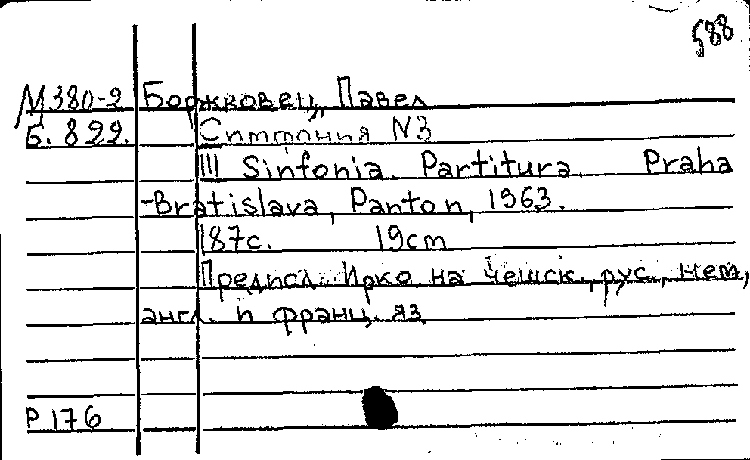 588
М380-2 Боржковец, Павел
Б. 822. Симфония N3
III Sinfonia. Partitura. Praha
-Bratislava, Panton, 1963.
187с. 19cm
Предисл. Ирко на чешск., рус., нем,
англ. и франц. яз
Р176